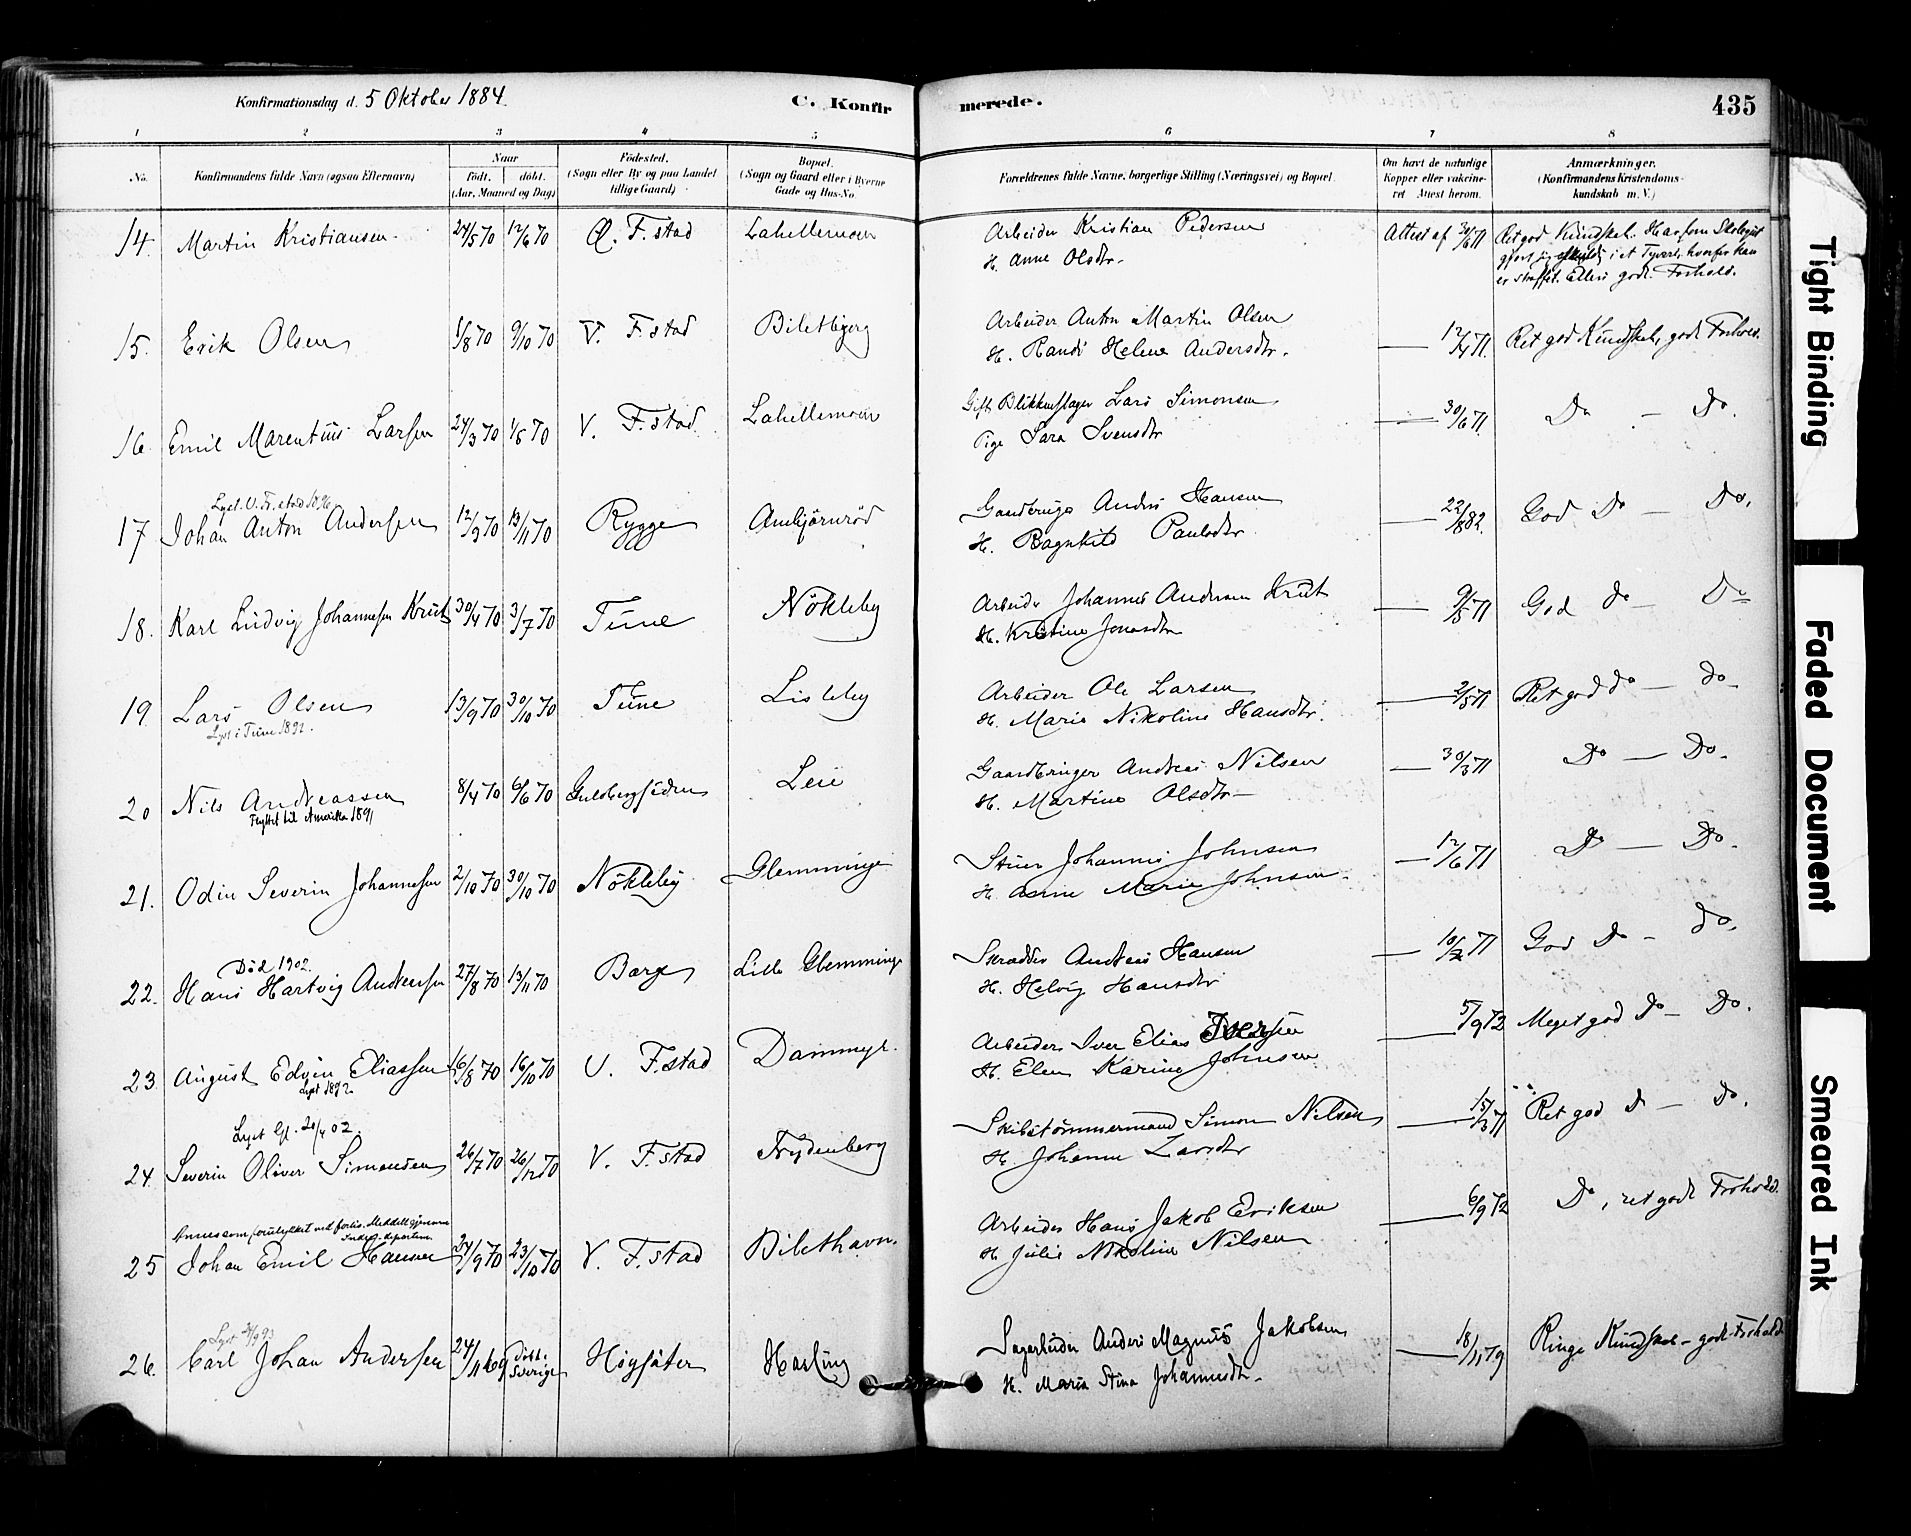 Konfirmationsdag d. 5 Oktober 1884.
C. Konfirmerede.
435
1 2 3 4 5 6 7 8
No.
Konfirmandens fulde Navn (ogsaa Efternavn)
Naar
födt. döbt.
(Aar, Maaned og Dag)
Födested.
(Sogn eller By og paa Landet
tillige Gaard)
Bopæl.
(Sogn og Gaard eller i Byerne
Gade og Hus-No.
Forældrenes fulde Navne, borgerlige Stilling (Næringsvei) og Bopæl
Om havt de naturlige
Kopper eller vakcine-
ret Attest herom.
Anmærkninger.
(Konfirmandens Kristendoms-
kundskab m. V.)
14. Martin Kristiansen 24/5 70 12/6 70 Ø. F.stad Lahellemoen Arbeider Kristian Pedersen Attest af 30/6 71 Ret god Kundskab. Har som Skolegut
H. Anne Olsdtr. gjort sig skyldig i et Tyveri, hvorfor han
er straffet. Ellers godt Forhold.
15. Erik Olsen 1/8 70 9/10 70 V. F.stad Biletbjerg Arbeider Anton Martin Olsen — 12/4 71. Ret god Kundskab, godt Forhold.
H. Randi Helene Andersdtr.
16. Emil Marentius Larsen 24/3 70 1/8 70 V. F.stad Lahellemoen Gift Blikkenslager Lars Simonsen — 30/6 71. Do — Do.
Pige Sara Svensdtr
Lyst V. Fr.stad 1896
17 Johan Anton Andersen 12/9 70 13/11 70 Rygge Ambjörnröd Gaardbruger Anders Hansen — 22/8 82. God Do — Do.
H. Ragnhild Paulsdtr
18. Karl Ludvig Johannesen Krut 30/4 70 3/7 70 Tune Nökleby Arbeider Johannes Andersen Krut — 9/5 71 God do — Do
H. Kristine Jonasdtr
19. Lars Olsen 13/9 70 30/10 70 Tune Lisleby Arbeider Ole Larsen — 2/5 71 Ret god do — do
Lyst i Tune 1892. H. Marie Nikoline Hansdtr.
20 Nils Andreassen 8/4 70 6/6 70 Guldbergsiden Leie Gaardbruger Andreas Nilsen — 30/3 71 Do — Do.
Flyttet til Amerika 1891 H. Martine Olsdtr
21. Odin Severin Johannesen 2/10 70 30/10 70 Nökleby Glemminge Stuer Johannes Johnsen — 12/6 71 Do — Do.
H. Anne Marie Johnsen
Död 1902.
22. Hans Hartvig Andreasen 27/8 70 13/11 70 Borge Lille Glemminge Skrædder Andreas Hansen — 10/2 71 God Do — do.
H. Helvig Hansdtr
23. August Edvin Eliassen 16/8 70 16/10 70 V. F.stad Dammyr. Arbeider Iver Elias Iversen — 5/9 72 Meget god Do — Do.
Lyst 1892 H. Elen Karine Johnsen
Lyst Gl. 20/4 02.
24. Severin Oliver Simonsen 26/7 70 26/12 70 V. F.stad Frydenberg Skibstömmermand Simon Nilsen — 15/3 71 Ret god D — Do.
H. Johanne Larsdtr
25 Johan Emil Hansen 24/9 70 23/10 70 V. F.stad Bilethavn. Arbeider Hans Jakob Eriksen — 6/9 72 Do, ret godt Forhold.
H. Julie Nikoline Nilsen
Lyst 24/9 93
26. Carl Johan Andersen 24/11 69 Döbt i Sverige Högsäter Hasling Sagarbeider Anders Magnus Jakobsen — 18/11 79 Ringe Kundskab — godt Forhold
H. Maria Stina Johannesdtr.
Tight Binding
Faded Document
Smeared Ink